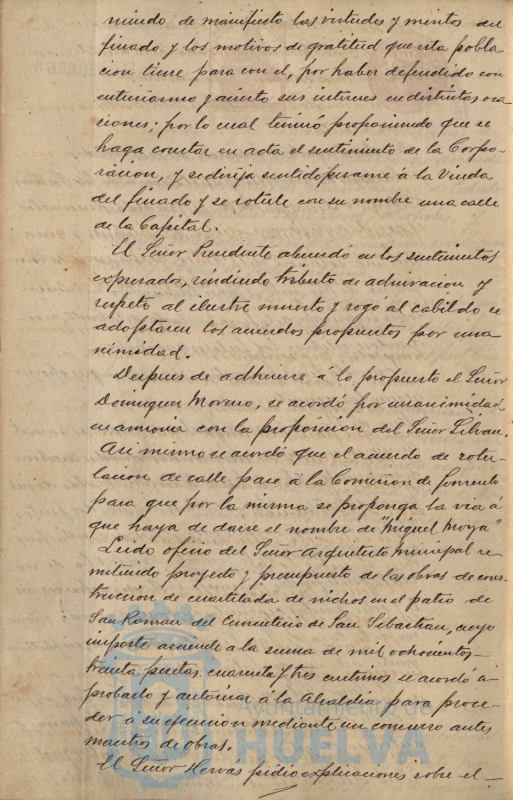 niendo de manifiesto las virtudes y meritos del
finado y los motivos de gratitud que esta pobla
cion tiene para con el, por haber defendido con
entusiasmo y acierto sus intereses en distintas oca
ciones; por lo cual terminó proponiendo que se
haga constar en acta el sentimiento de la Corpo-
racion, y se dirija sentido pesame á la Viuda
del finado y se rotule con su nombre una calle
de la Capital.
El Señor Presidente abundó en los sentimientos
expresados, rindiendo tributo de admiracion y
respeto al ilustre muerto y rogó al cabildo se
adoptaren los acuerdos propuestos por una
nimidad.
Despues de adherirse á lo propuesto el Señor
Dominguez Moreno, se acordó por unanimidad
en armonia con la proposicion del Señor
Asi mismo se acordó que el acuerdo de rotu-
lacion de calle pase á la Comision de fomento
para que por la misma se proponga la via á
que haya de darse el nombre de "Miguel Moya"
Leido oficio del Señor Arquitecto Municipal re
mitiendo proyecto y presupuesto de las obras de cons-
truccion de cuartelada de nichos en el patio de
San Roman del Cementerio de San Sebastian, cuyo
importe asciende á la suma de mil ochocientas
treinta pesetas cuarenta y tres centimos se acordó á
probarlo y autorizar á la Alcaldia para proce-
der a su ejecucion mediante un concurso entre
maestros de obras.
El Señor Hervas pidio explicaciones sobre el
HUELVA